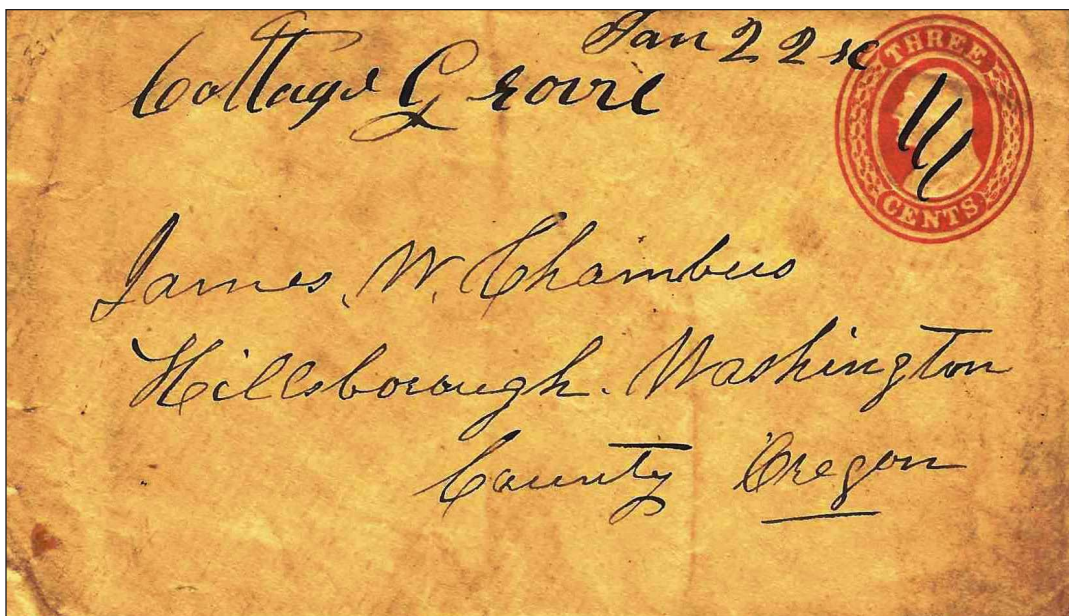 Jan 22
Cottage Grove
THREE
CENTS
James. W. Chambers
Hillsborough. Washington
County Oregon